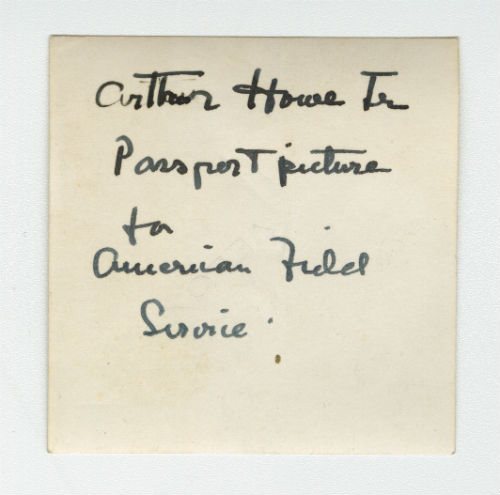 Arthur Howe Jr
Passport picture
for
American Field
Service.